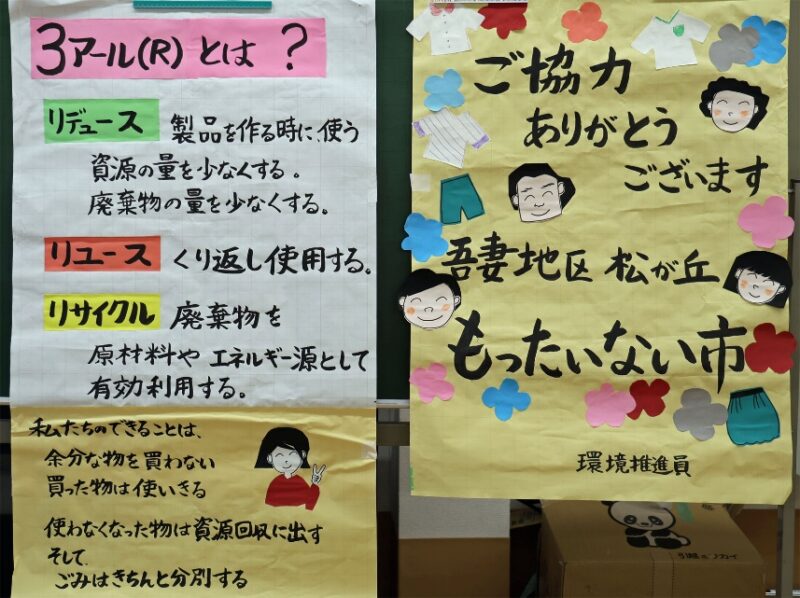 3アール(R)とは?
リデュース 製品を作る時に、使う
資源の量を少なくする。
廃棄物の量を少なくする。
リユース くり返し使用する。
リサイクル 廃棄物を
原材料や エネルギー源として
有効利用する。
私たちのできることは、
余分な物を買わない
買った物は使いきる
使わなくなった物は資源回収に出す
そして、
ごみはきちんと分別する
ご協力
ありがとう
ございます
吾妻地区 松が丘
もったいない市
環境推進員